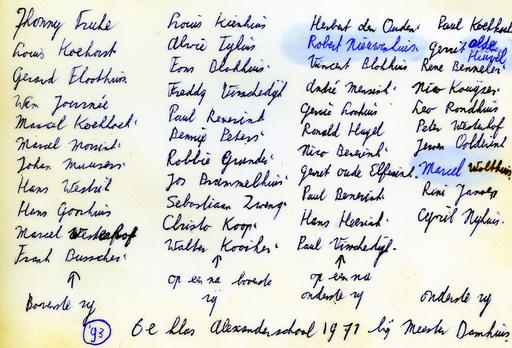 Jhonny Fruke
Louis Koehorst
Gerard Floothuis
Wen Journée
Marcel Koekhoek
Marcel Mosink
Johan
Hans
Hans Goorhuis
Marcel Westerhof
Frank Busscher
Bovenste rij
Louis Kienhuis
Alwie Tylus
Fons Blokhuis
Freddy Vinschedijk
Paul Reserink
Bennie Peters
Robbie
Jos Brummelhuis
Sebastiaan Zweng
Christo Koop
Walter Kooiker
op een na bovenste
rij
Herbert den Ouden
Robert Nieuwenhuis
Vincent Blokhuis
André
Gerrie
Ronald Hagel
Nico
Gerrit oude
Paul
Hans
Paul Vinschedijk
op een na
onderste rij
Paul Koekhoek
Gerrit olde
Heuvel
Rene Benneker
Nico
Leo Rondhuis
Peter Westerhof
Jeroen Olderink
Marcel Wolthuis
Rini Jansen
Cyriel Nyhuis
onderste rij
'93 6e klas Alexanderschool 1971 bij Meester Damhuis